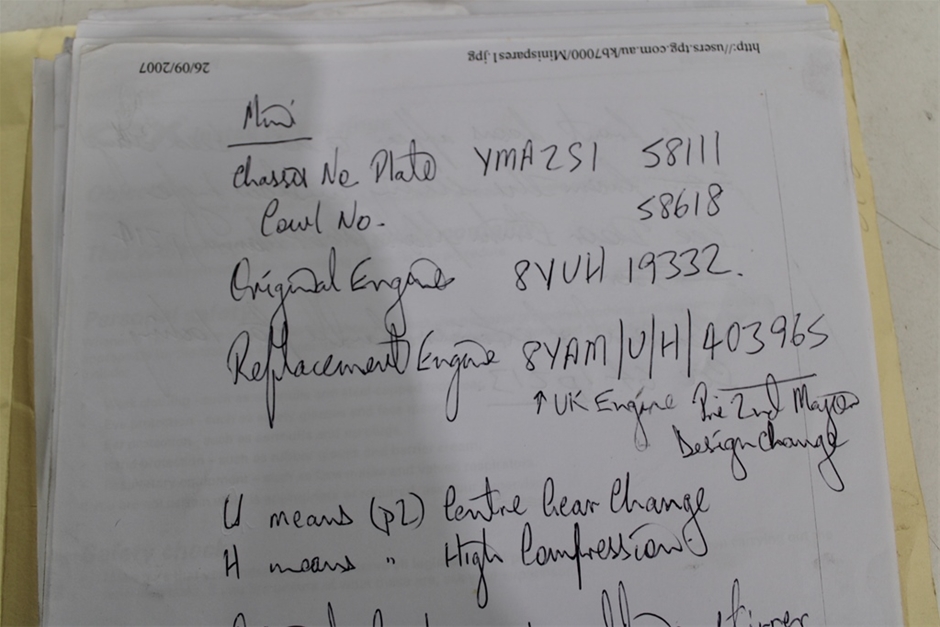 http://users.tpg.com.au/kb7000/Minispares1.jpg
26/09/2007
Mini
Chassis No Plate YMA2S1 58111
Cowl No. 58618
Original Engine 8YUH 19332.
Replacement Engine 8YAM/U/H/403965
↑ UK Engine Pre 2nd Major
Design Change
U means (p2) Centre Gear Change
H means " High Compression